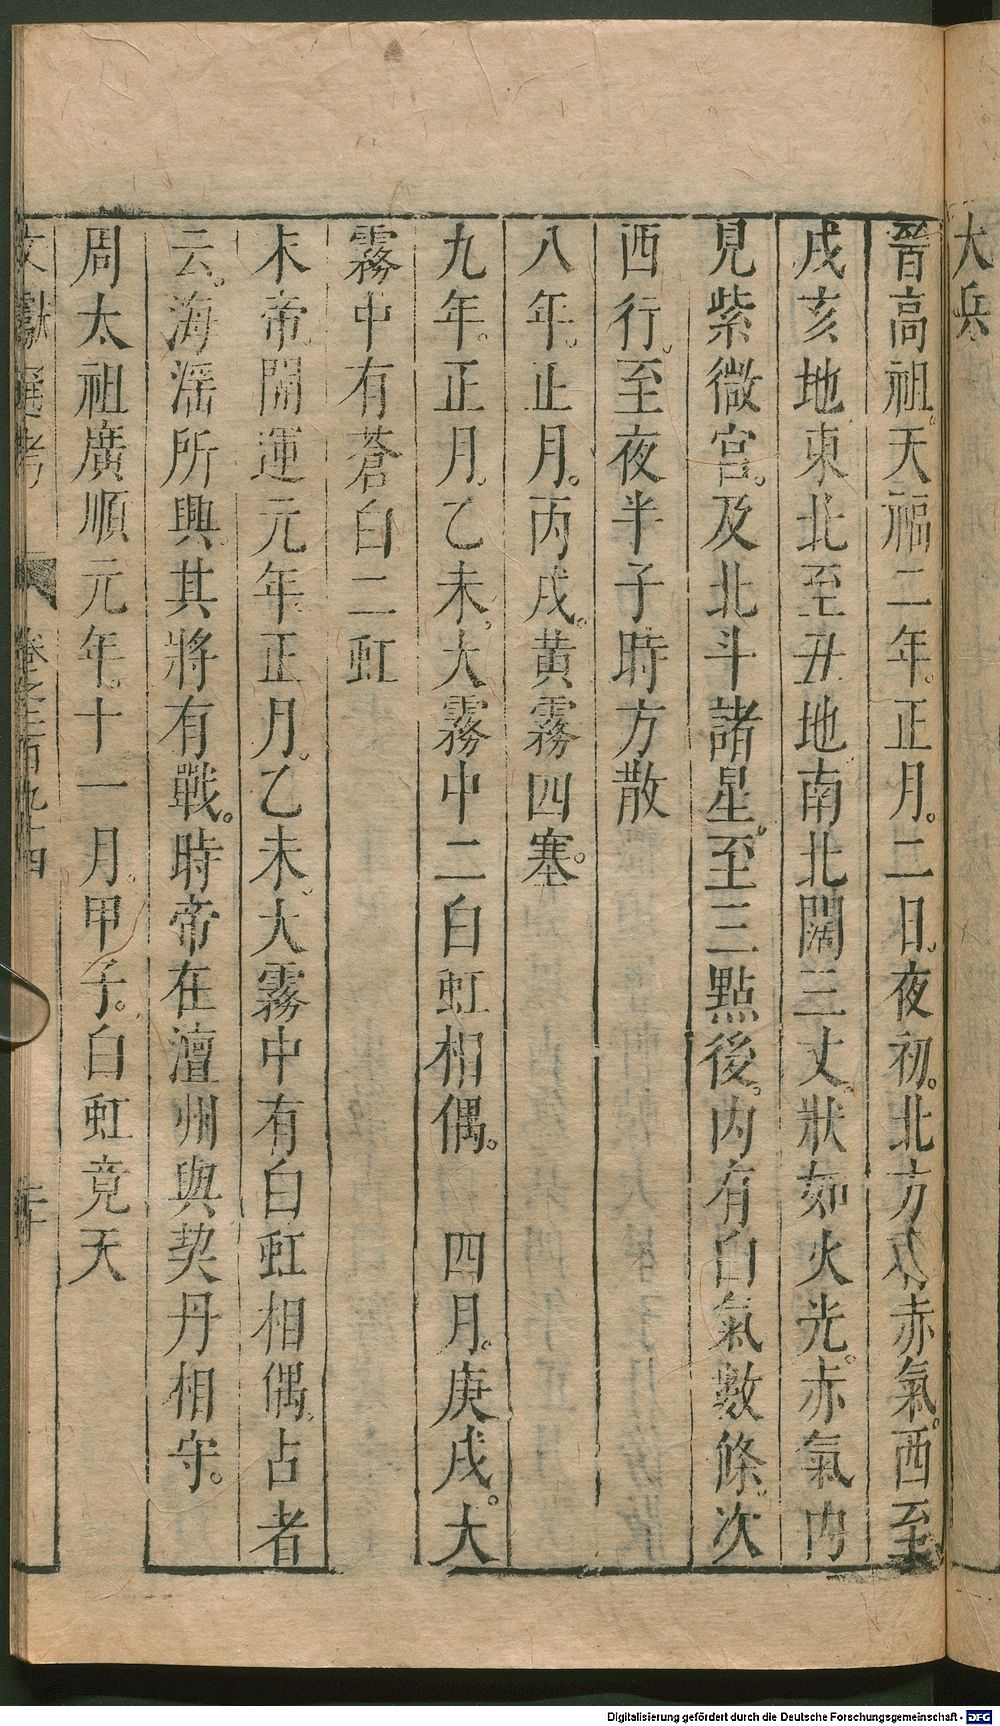 大兵
晉高祖。天福二年。正月。二日。夜初。北方赤氣。西至
戌亥地東北至丑地南北闊三丈。狀如火光。赤氣内
見紫微宮。及北斗諸星。至三點後。内有白氣數條。次
西行。至夜半子時方散
八年。正月。丙戌。黃霧四塞。
九年。正月。乙未。大霧中二白虹相偶。　四月。庚戌。大
霧中有蒼白二虹
末帝開運元年正月。乙未。大霧中有白虹相偶。占者
云。海淫所興。其將有戰。時帝在澶州與契丹相守。
周太祖廣順元年。十一月。甲子。白虹竟天
文獻通考　卷之二百九十四
Digitalisierung gefördert durch die Deutsche Forschungsgemeinschaft - DFG